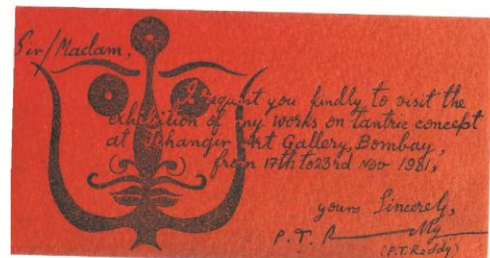 Sir/Madam,
I request you kindly to visit the
exhibition of my works on tantric concept
at Jehangir Art Gallery, Bombay,
from 17th to 23rd Nov 1981,
yours Sincerely,
P. T. R
(P.T. Reddy)